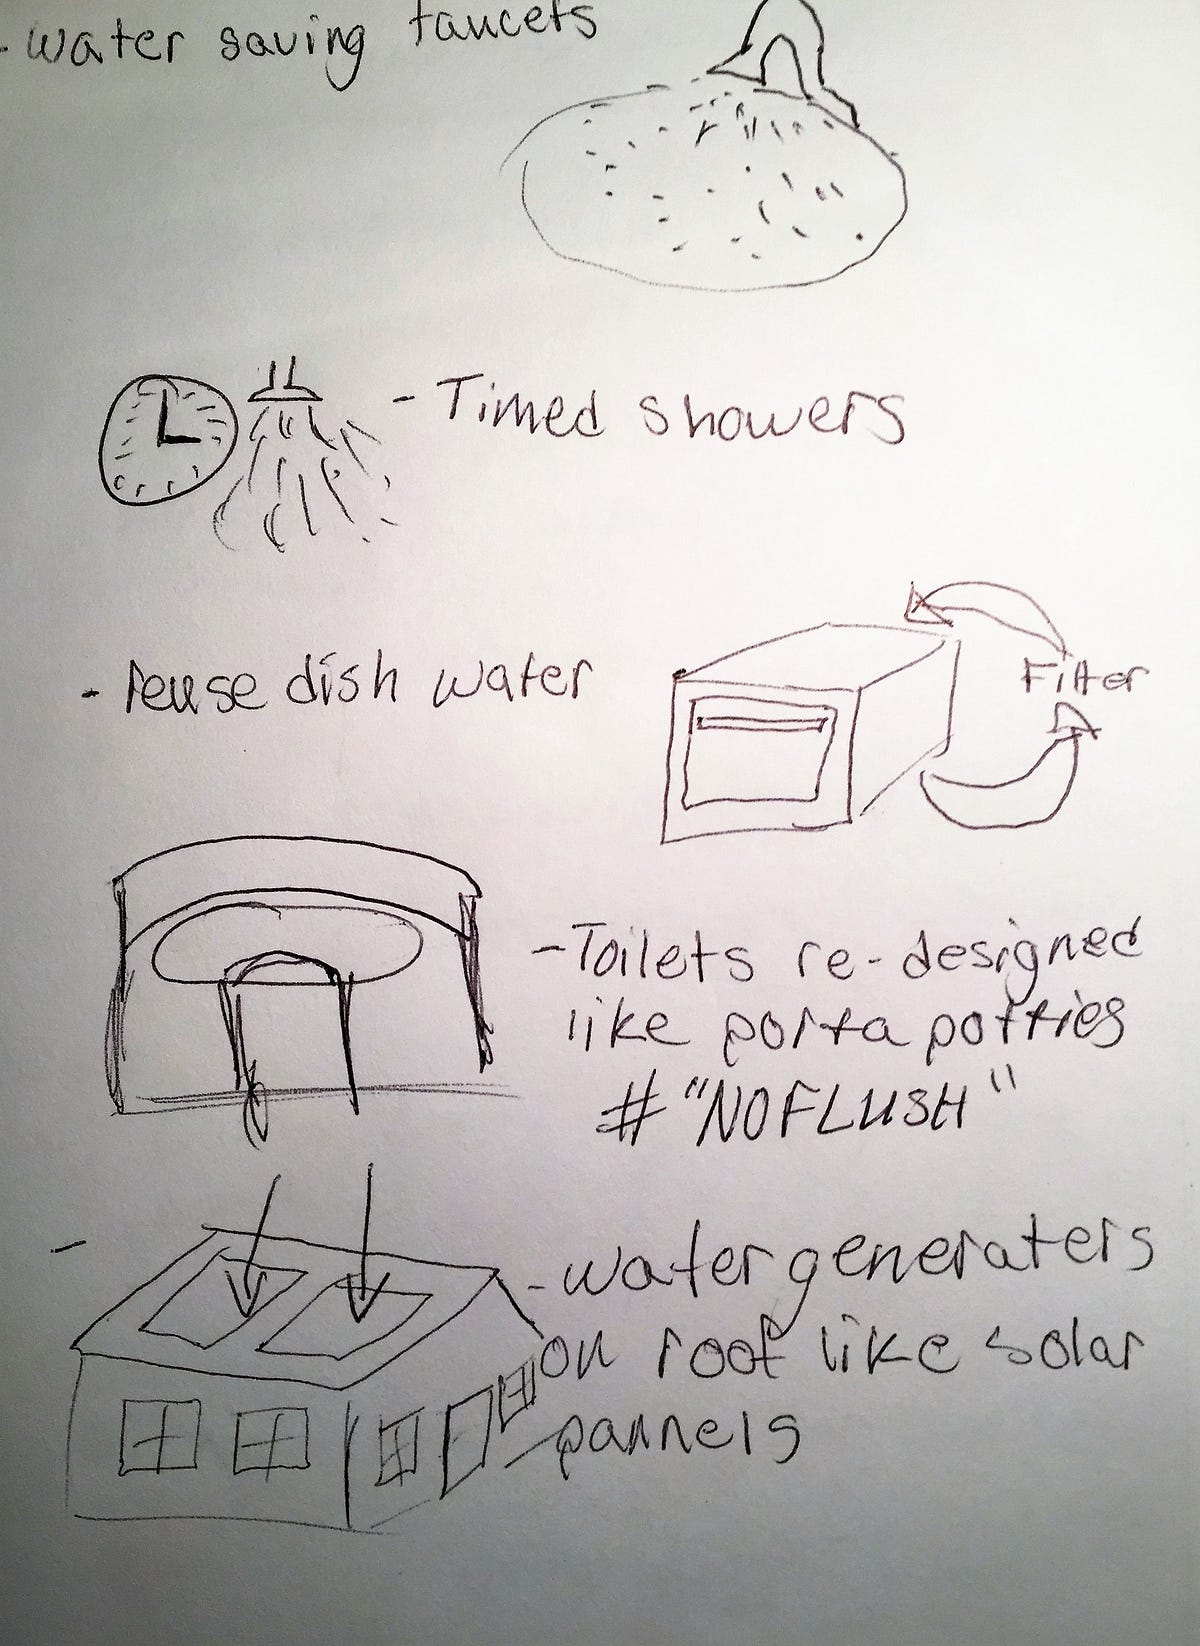 - water saving faucets
- Timed showers
- reuse dish water
Filter
- Toilets re-designed
like porta potties
# "NOFLUSH"
- water generaters
on roof like solar
pannels